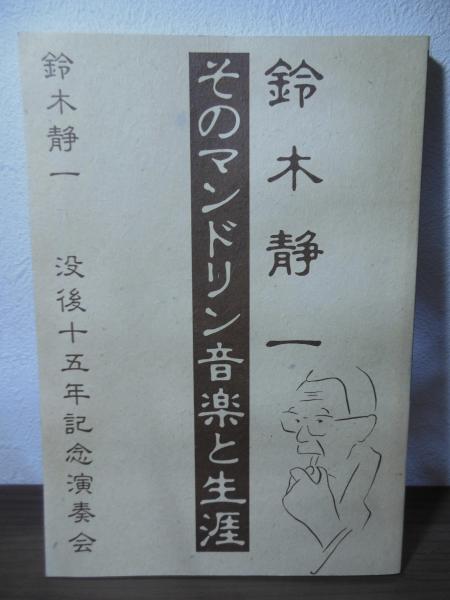 鈴木静一
そのマンドリン音楽と生涯
鈴木静一　没後十五年記念演奏会